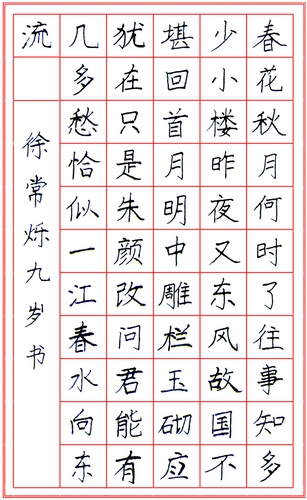 春花秋月何时了往事知多
少小楼昨夜又东风故国不
堪回首月明中雕栏玉砌应
犹在只是朱颜改问君能有
几多愁恰似一江春水向东
流
徐常烁九岁书